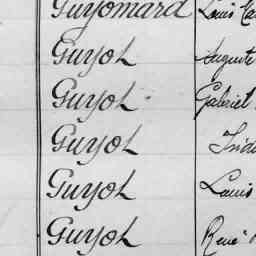 Guyomard Louis
Guyot Auguste
Guyot Gabriel
Guyot
Guyot Louis
Guyot René